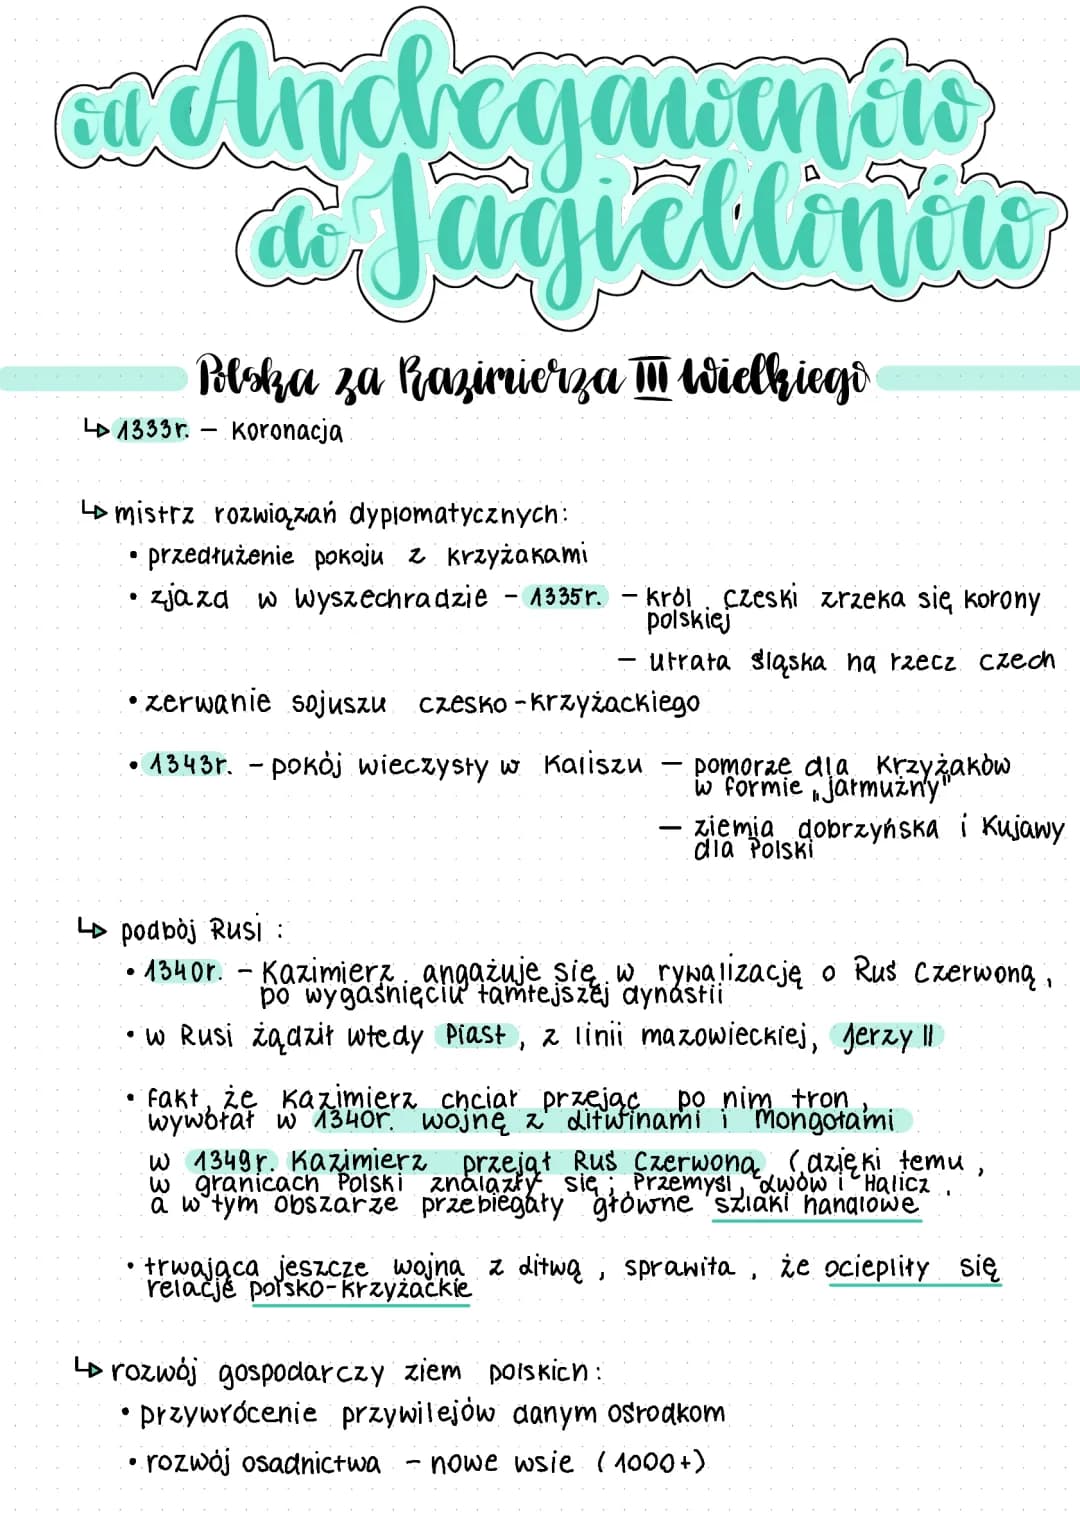 od Andegawenów
do Jagiellonów
Polska za Kazimierza III Wielkiego
↳ 1333r. – koronacja
↳ mistrz rozwiązań dyplomatycznych:
• przedłużenie pokoju z krzyżakami
• zjazd w Wyszechradzie – 1335r. – król czeski zrzeka się korony
polskiej
– utrata śląska na rzecz czech
• zerwanie sojuszu czesko-krzyżackiego
• 1343r. – pokój wieczysty w Kaliszu – pomorze dla Krzyżaków
w formie „jałmużny"
– ziemia dobrzyńska i Kujawy
dla Polski
↳ podbój Rusi :
• 1340r. – Kazimierz angażuje się w rywalizację o Ruś Czerwoną,
po wygaśnięciu tamtejszej dynastii
• w Rusi żądził wtedy Piast, z linii mazowieckiej, Jerzy II
• fakt, że Kazimierz chciał przejąc po nim tron,
wywołał w 1340r. wojnę z Litwinami i Mongołami
w 1349r. Kazimierz przejął Ruś Czerwoną (dzięki temu,
w granicach Polski znalazły się ; Przemyśl, Lwów i Halicz,
a w tym obszarze przebiegały główne szlaki handlowe
• trwająca jeszcze wojna z Litwą, sprawiła, że ociepliły się
relacje polsko-krzyżackie
↳ rozwój gospodarczy ziem polskich:
• przywrócenie przywilejów danym ośrodkom
• rozwój osadnictwa – nowe wsie (1000+)